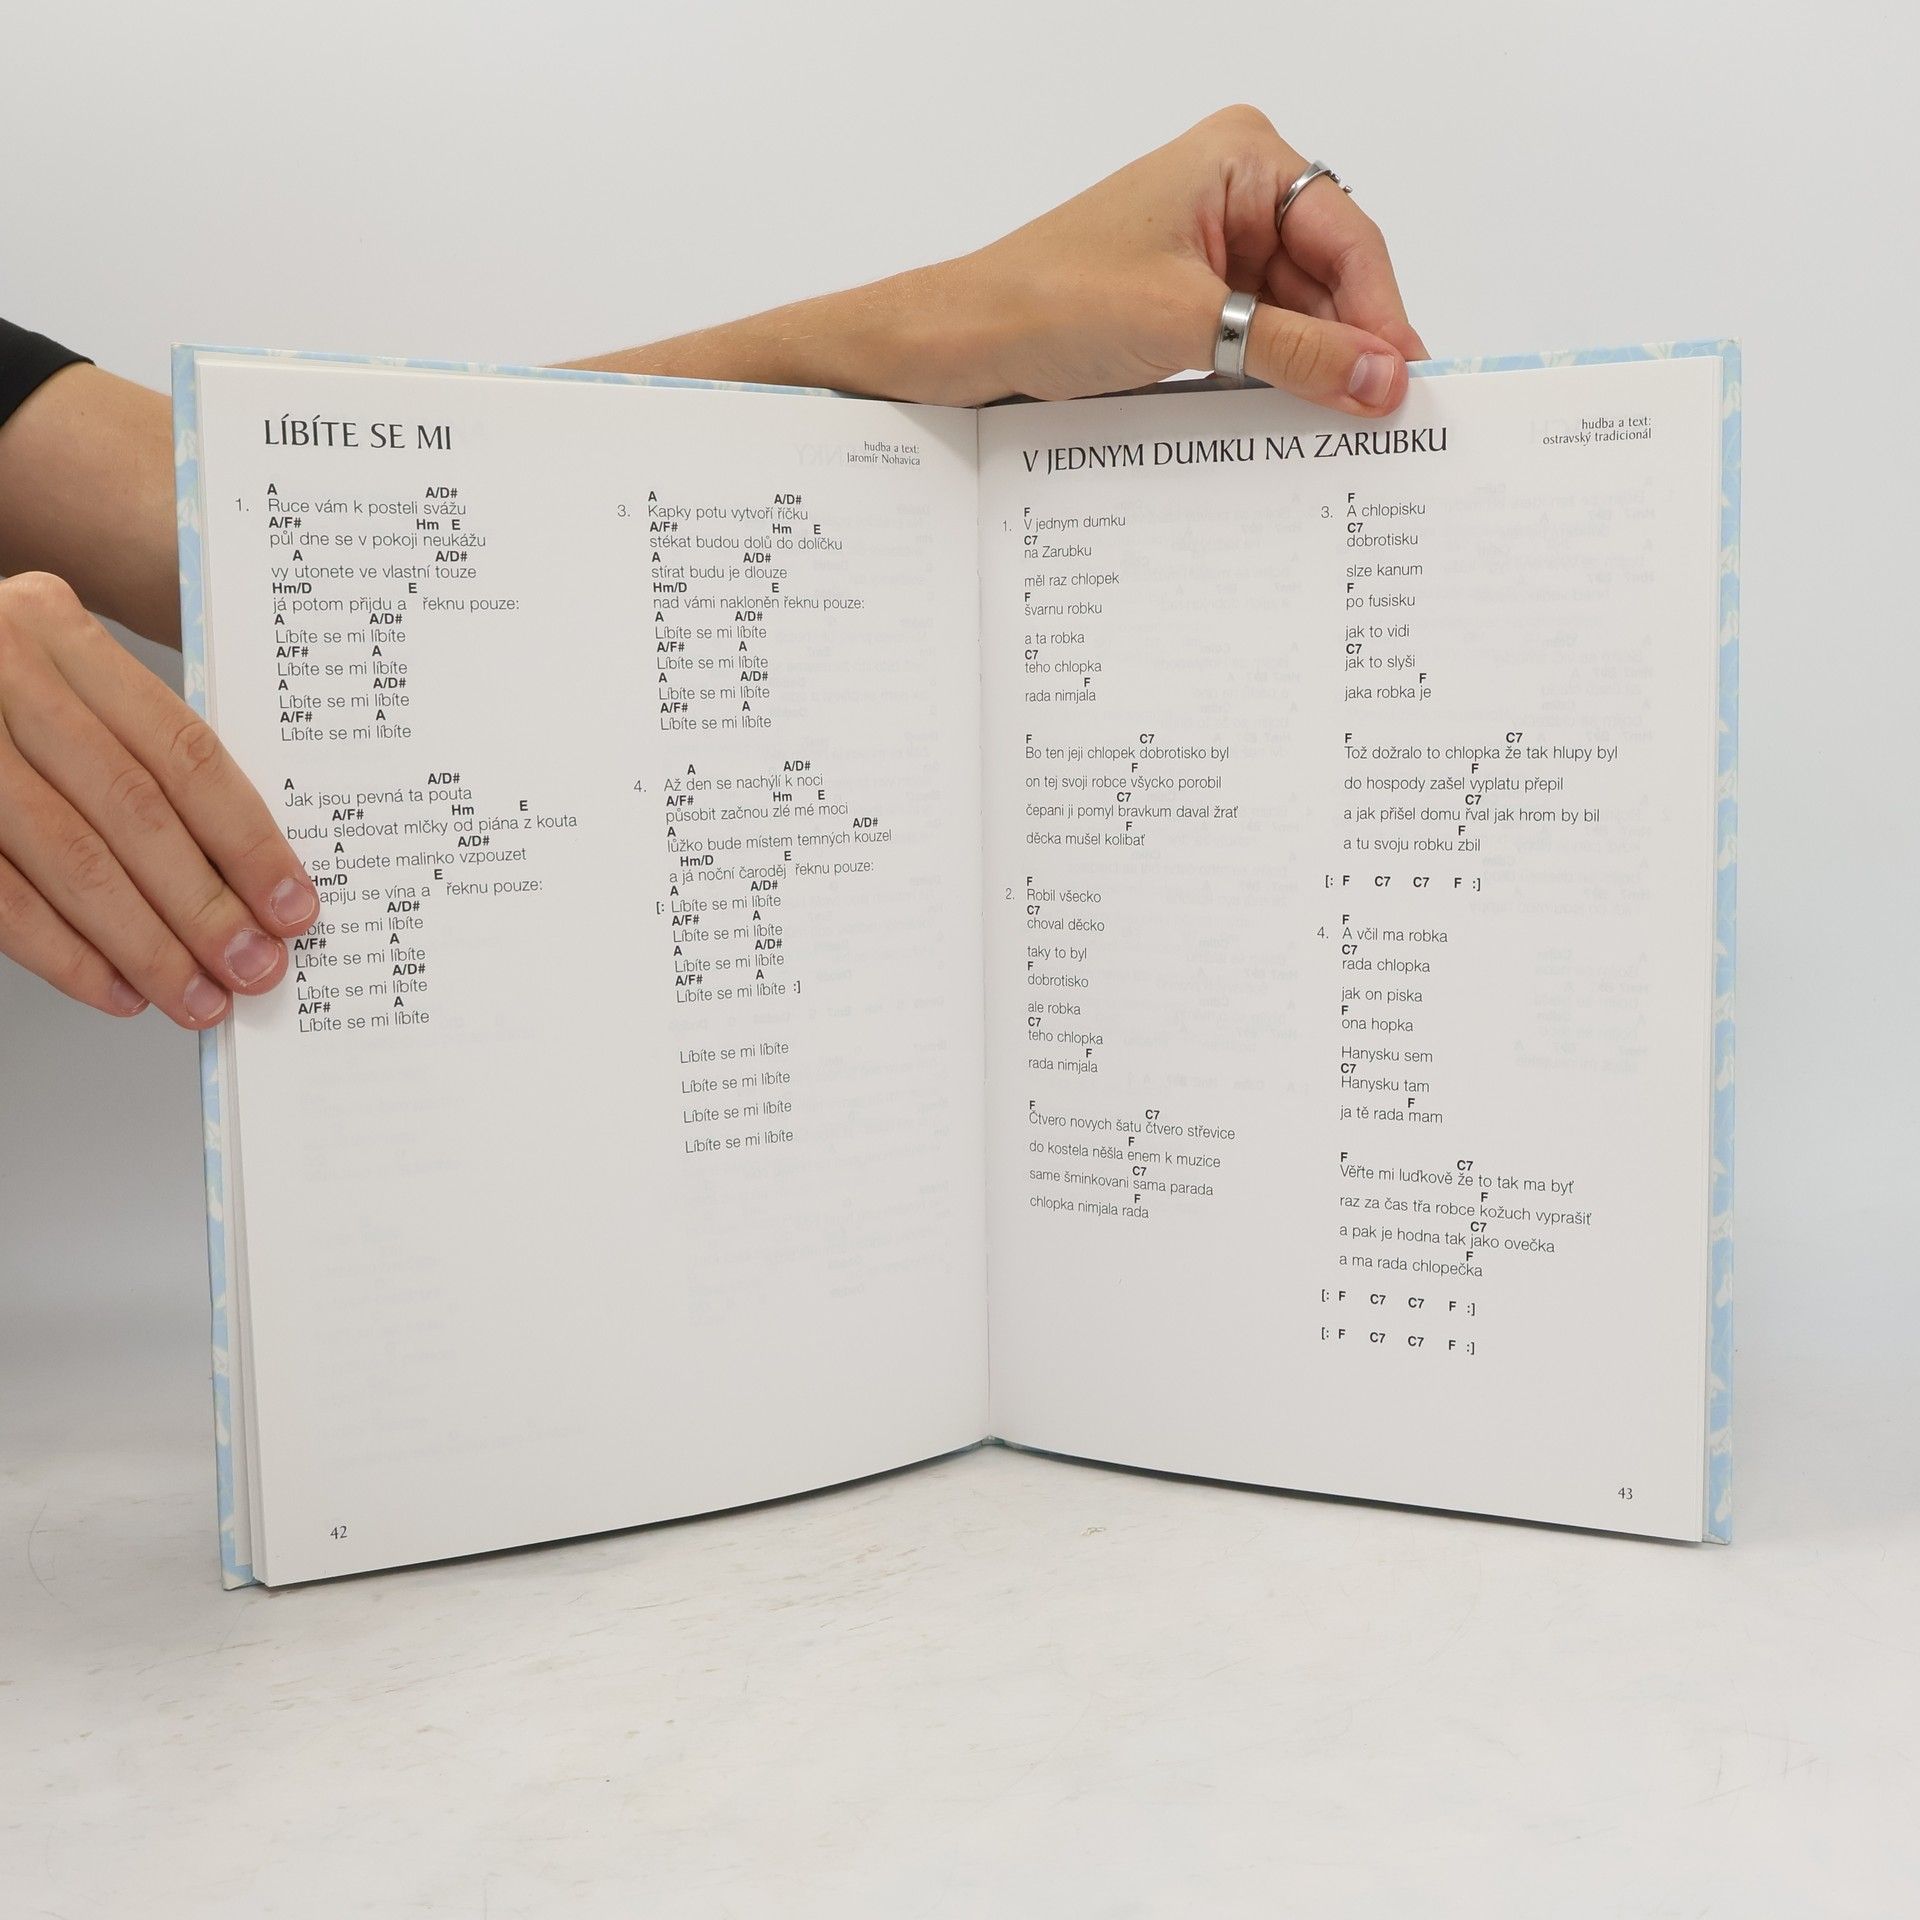 LÍBÍTE SE MI
hudba a text:
Jaromír Nohavica
A A/D#
1. Ruce vám k posteli svážu
A/F# Hm E
půl dne se v pokoji neukážu
A A/D#
vy utonete ve vlastní touze
Hm/D E
já potom přijdu a řeknu pouze:
A A/D#
Líbíte se mi líbíte
A/F# A
Líbíte se mi líbíte
A A/D#
Líbíte se mi líbíte
A/F# A
Líbíte se mi líbíte
A A/D#
Jak jsou pevná ta pouta
A/F# Hm E
budu sledovat mlčky od piána z kouta
A A/D#
se budete malinko vzpouzet
Hm/D E
apiju se vína a řeknu pouze:
A/D#
bíte se mi líbíte
A/F# A
Líbíte se mi líbíte
A A/D#
Líbíte se mi líbíte
A/F# A
Líbíte se mi líbíte
A A/D#
3. Kapky potu vytvoří říčku
A/F# Hm E
stékat budou dolů do dolíčku
A A/D#
stírat budu je dlouze
Hm/D E
nad vámi nakloněn řeknu pouze:
A A/D#
Líbíte se mi líbíte
A/F# A
Líbíte se mi líbíte
A A/D#
Líbíte se mi líbíte
A/F# A
Líbíte se mi líbíte
A A/D#
4. Až den se nachýlí k noci
A/F# Hm E
působit začnou zlé mé moci
A A/D#
lůžko bude místem temných kouzel
Hm/D E
a já noční čaroděj řeknu pouze:
A A/D#
[: Líbíte se mi líbíte
A/F# A
Líbíte se mi líbíte
A A/D#
Líbíte se mi líbíte
A/F# A
Líbíte se mi líbíte :]
Líbíte se mi líbíte
Líbíte se mi líbíte
Líbíte se mi líbíte
Líbíte se mi líbíte
42
V JEDNYM DUMKU NA ZARUBKU
hudba a text:
ostravský tradicionál
F
1. V jednym dumku
C7
na Zarubku
měl raz chlopek
F
švarnu robku
a ta robka
C7
teho chlopka
F
rada nimjala
F C7
Bo ten jeji chlopek dobrotisko byl
F
on tej svoji robce všycko porobil
C7
čepani ji pomyl bravkum daval žrať
F
děcka mušel kolibať
F
2. Robil všecko
C7
choval děcko
taky to byl
F
dobrotisko
ale robka
C7
teho chlopka
F
rada nimjala
F C7
Čtvero novych šatu čtvero střevice
F
do kostela něšla enem k muzice
C7
same šminkovani sama parada
F
chlopka nimjala rada
F
3. A chlopisku
C7
dobrotisku
slze kanum
F
po fusisku
jak to vidi
C7
jak to slyši
F
jaka robka je
F C7
Tož dožralo to chlopka že tak hlupy byl
F
do hospody zašel vyplatu přepil
C7
a jak přišel domu řval jak hrom by bil
F
a tu svoju robku zbil
[: F C7 C7 F :]
F
4. A včil ma robka
C7
rada chlopka
jak on piska
F
ona hopka
Hanysku sem
C7
Hanysku tam
F
ja tě rada mam
F C7
Věřte mi luďkově že to tak ma byť
F
raz za čas třa robce kožuch vyprašiť
C7
a pak je hodna tak jako ovečka
F
a ma rada chlopečka
[: F C7 C7 F :]
[: F C7 C7 F :]
43